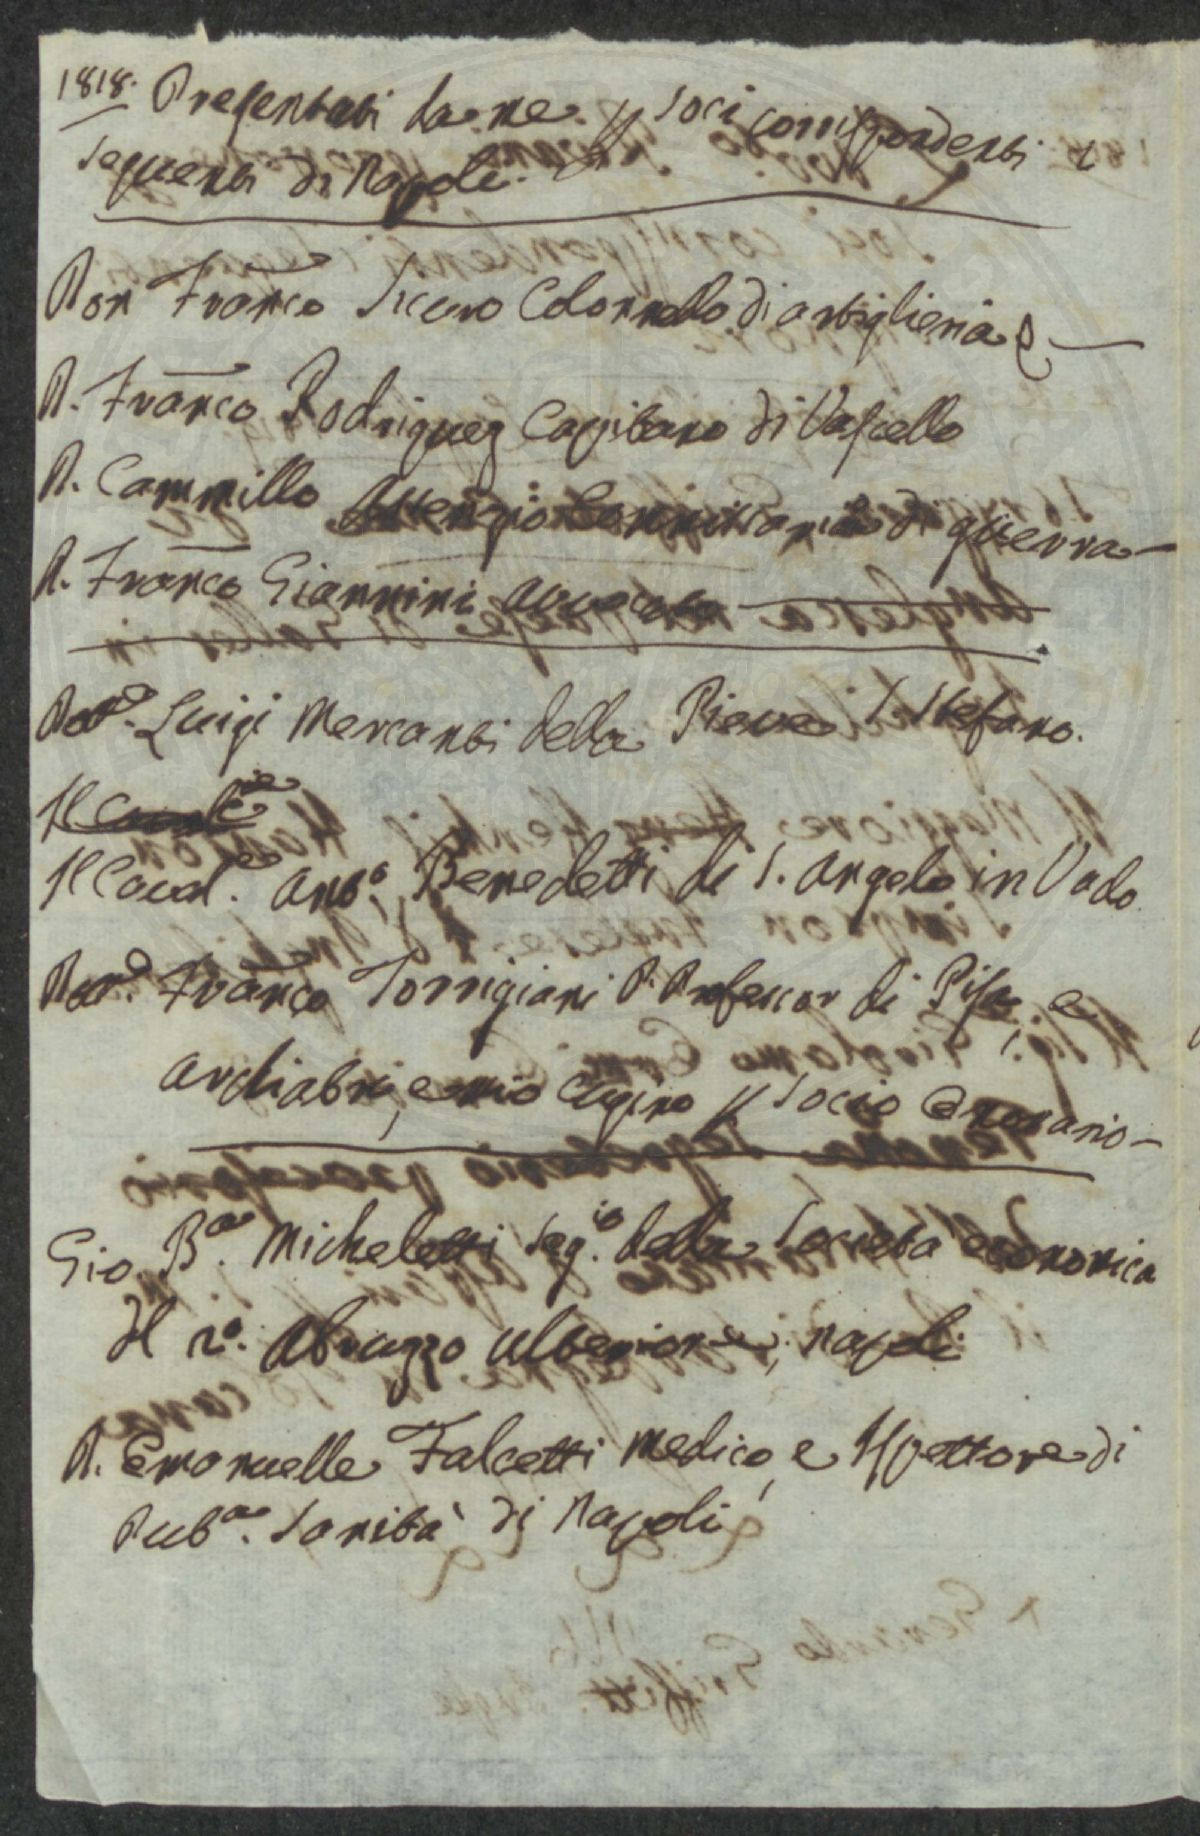 1818. Presentati da me p soci corrispondenti i
seguenti di Napoli.
Don Franco Siccuro Colonnello di artiglieria
D. Franco Rodriguez Capitano di Vascello
D. Cammillo Commissario di guerra
D. Franco Giannini avvocato
Dor. Luigi Mercanti della Pieve S Stefano.
Il Caval.e Anto Benedetti di S. Angelo in Vado
Dor. Franco Torrigiani P. Professor di Pisa, e
archiatri, e mio cugino p socio onorario
Gio Ba. Micheletti Seg.io della Società economica
Il 2o. Abruzzo ulteriore, Napoli
D. Emanuelle Falcetti medico, e Ispettore di
Puba. Sanità di Napoli